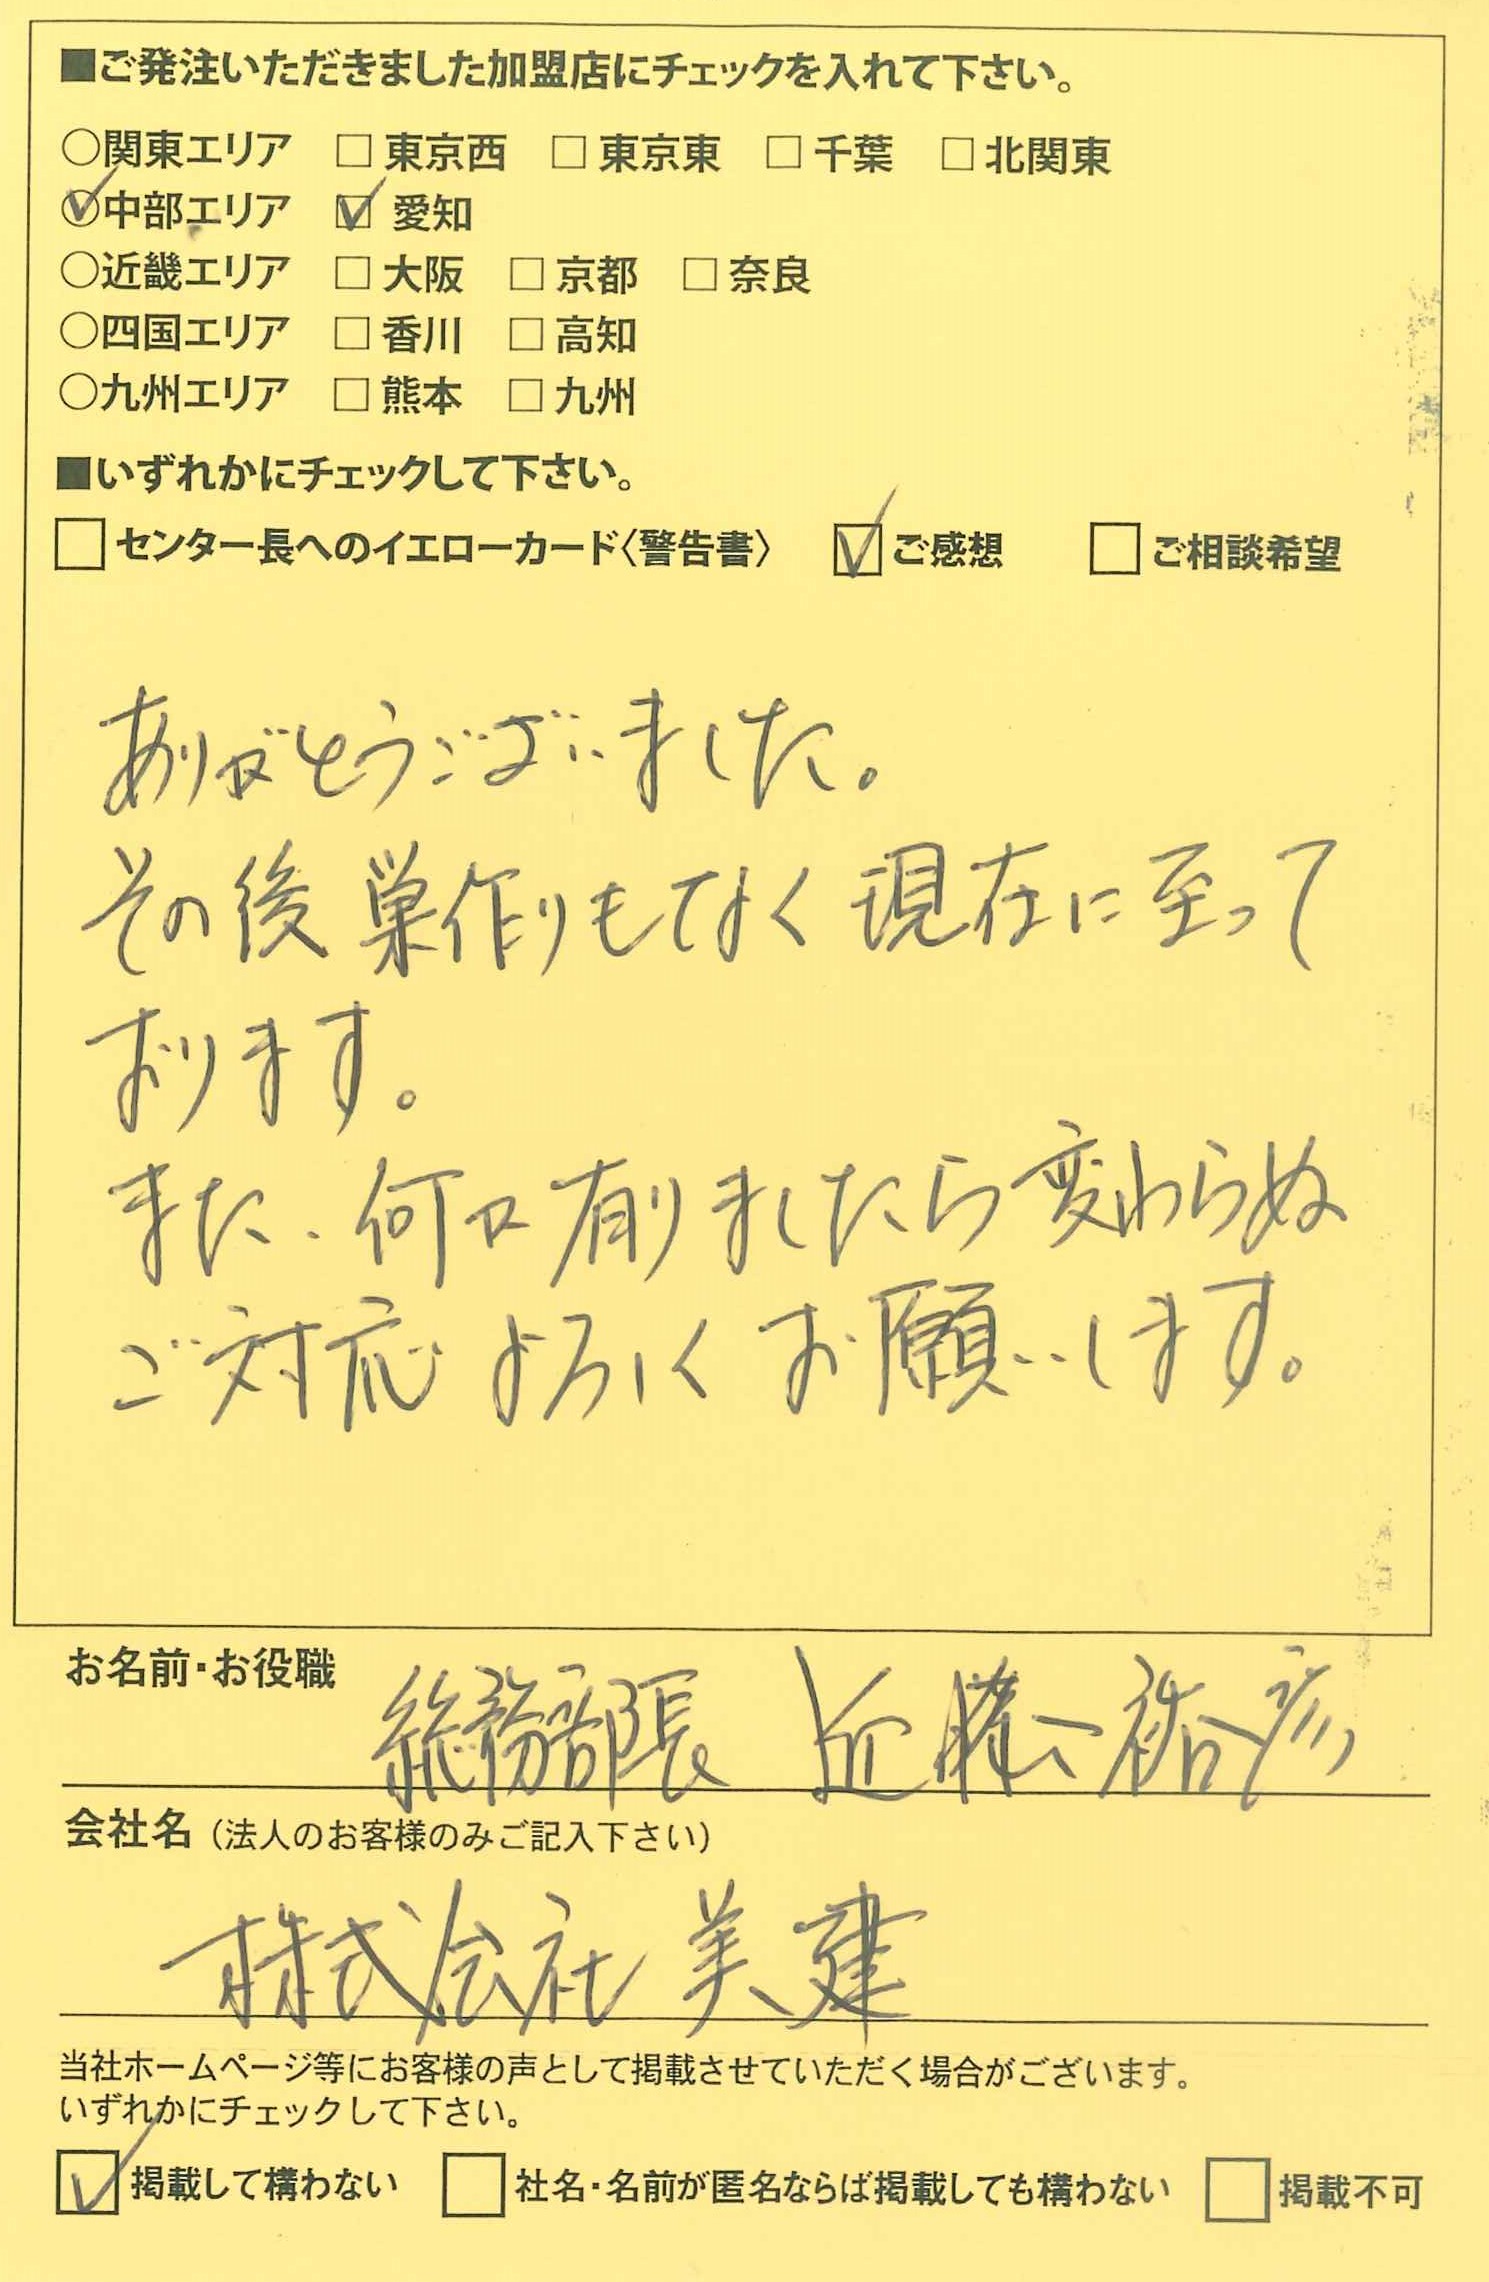 ■ご発注いただきました加盟店にチェックを入れて下さい。
○関東エリア □ 東京西 □ 東京東 □ 千葉 □ 北関東
○中部エリア ☑ 愛知
○近畿エリア □ 大阪 □ 京都 □ 奈良
○四国エリア □ 香川 □ 高知
○九州エリア □ 熊本 □ 九州
■いずれかにチェックして下さい。
□ センター長へのイエローカード〈警告書〉 ☑ ご感想 □ ご相談希望
ありがとうございました。
その後 巣作りもなく 現在に至って
おります。
また、何か有りましたら変わらぬ
ご対応よろしくお願いします。
お名前・お役職 総務部長 近藤 祐彦
会社名（法人のお客様のみご記入下さい）
株式会社 美建
当社ホームページ等にお客様の声として掲載させていただく場合がございます。
いずれかにチェックして下さい。
☑ 掲載して構わない □ 社名・名前が匿名ならば掲載しても構わない □ 掲載不可